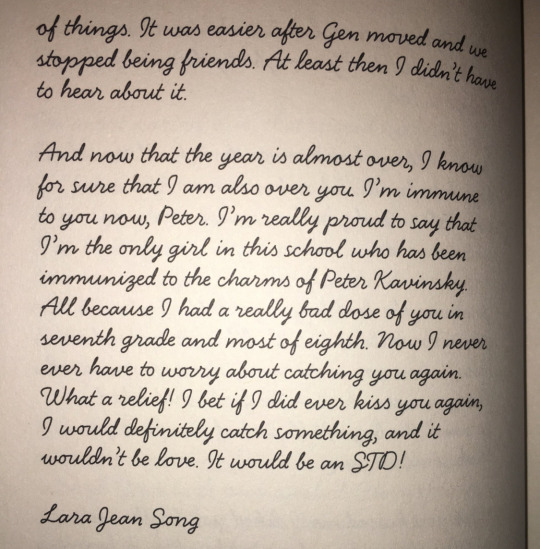 of things. It was easier after Gen moved and we
stopped being friends. At least then I didn't have
to hear about it.
And now that the year is almost over, I know
for sure that I am also over you. I'm immune
to you now, Peter. I'm really proud to say that
I'm the only girl in this school who has been
immunized to the charms of Peter Kavinsky.
All because I had a really bad dose of you in
seventh grade and most of eighth. Now I never
ever have to worry about catching you again.
What a relief! I bet if I did ever kiss you again,
I would definitely catch something, and it
wouldn't be love. It would be an STD!
Lara Jean Song